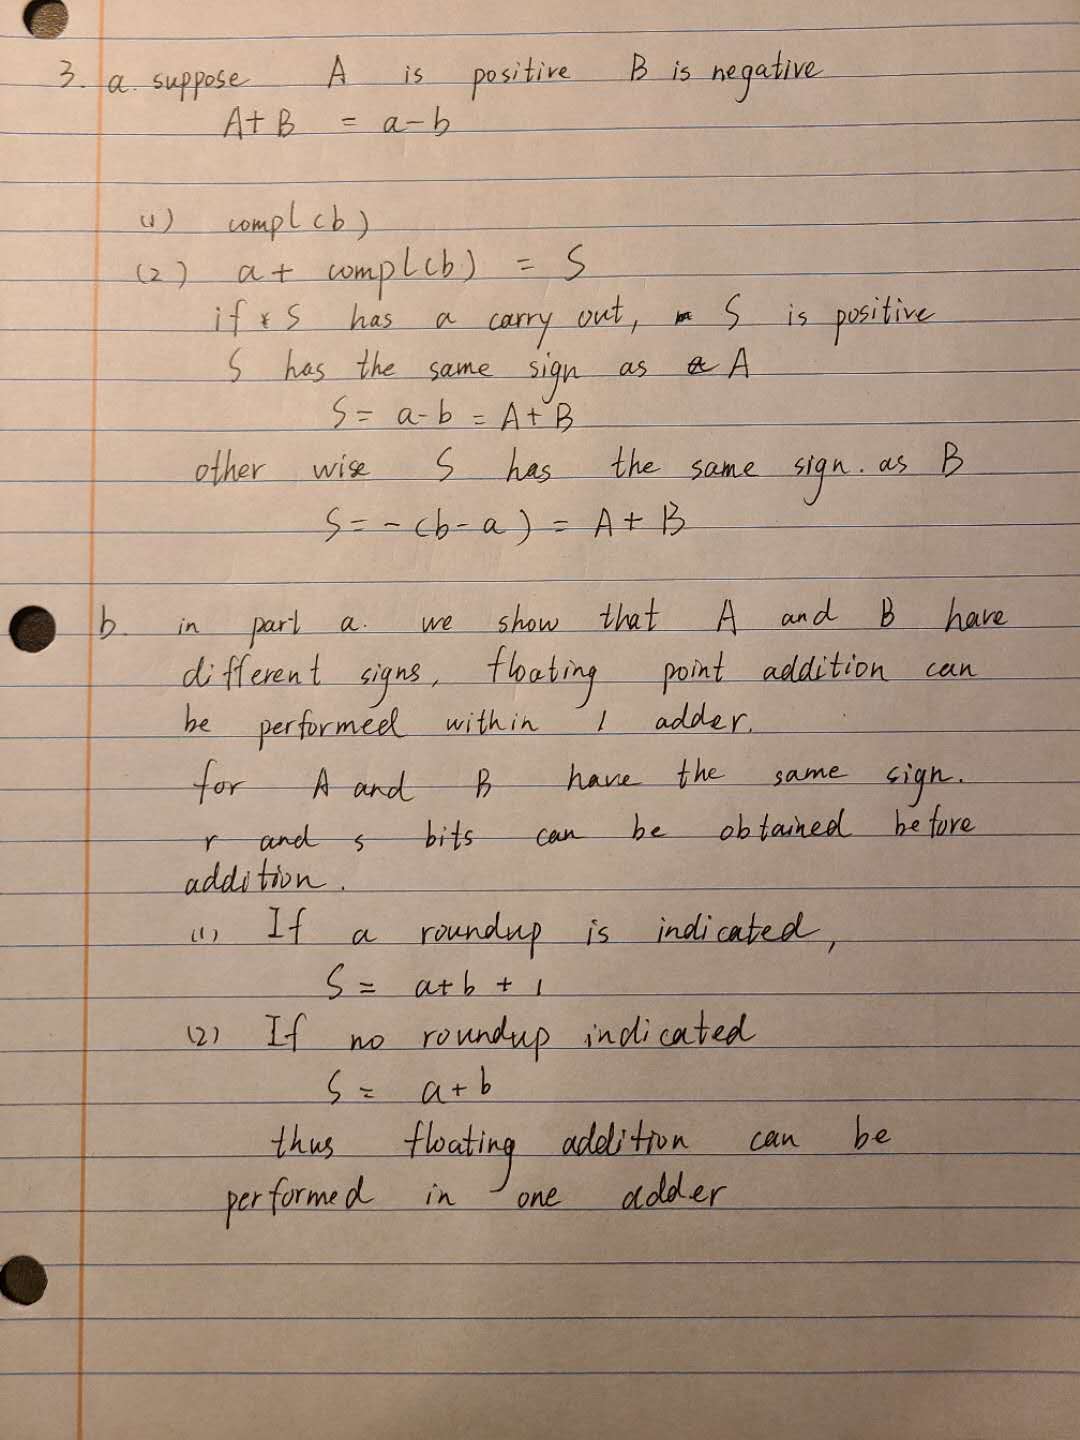 3. a. suppose A is positive B is negative
A + B = a - b
(1) compl(b)
(2) a + compl(b) = S
if S has a carry out, S is positive
S has the same sign as A
S = a - b = A + B
other wise S has the same sign. as B
S = - (b - a) = A + B
b. in part a. we show that A and B have
different signs, floating point addition can
be performed within 1 adder.
for A and B have the same sign.
r and s bits can be obtained before
addition.
(1) If a roundup is indicated,
S = a + b + 1
(2) If no roundup indicated
S = a + b
thus floating addition can be
performed in one adder